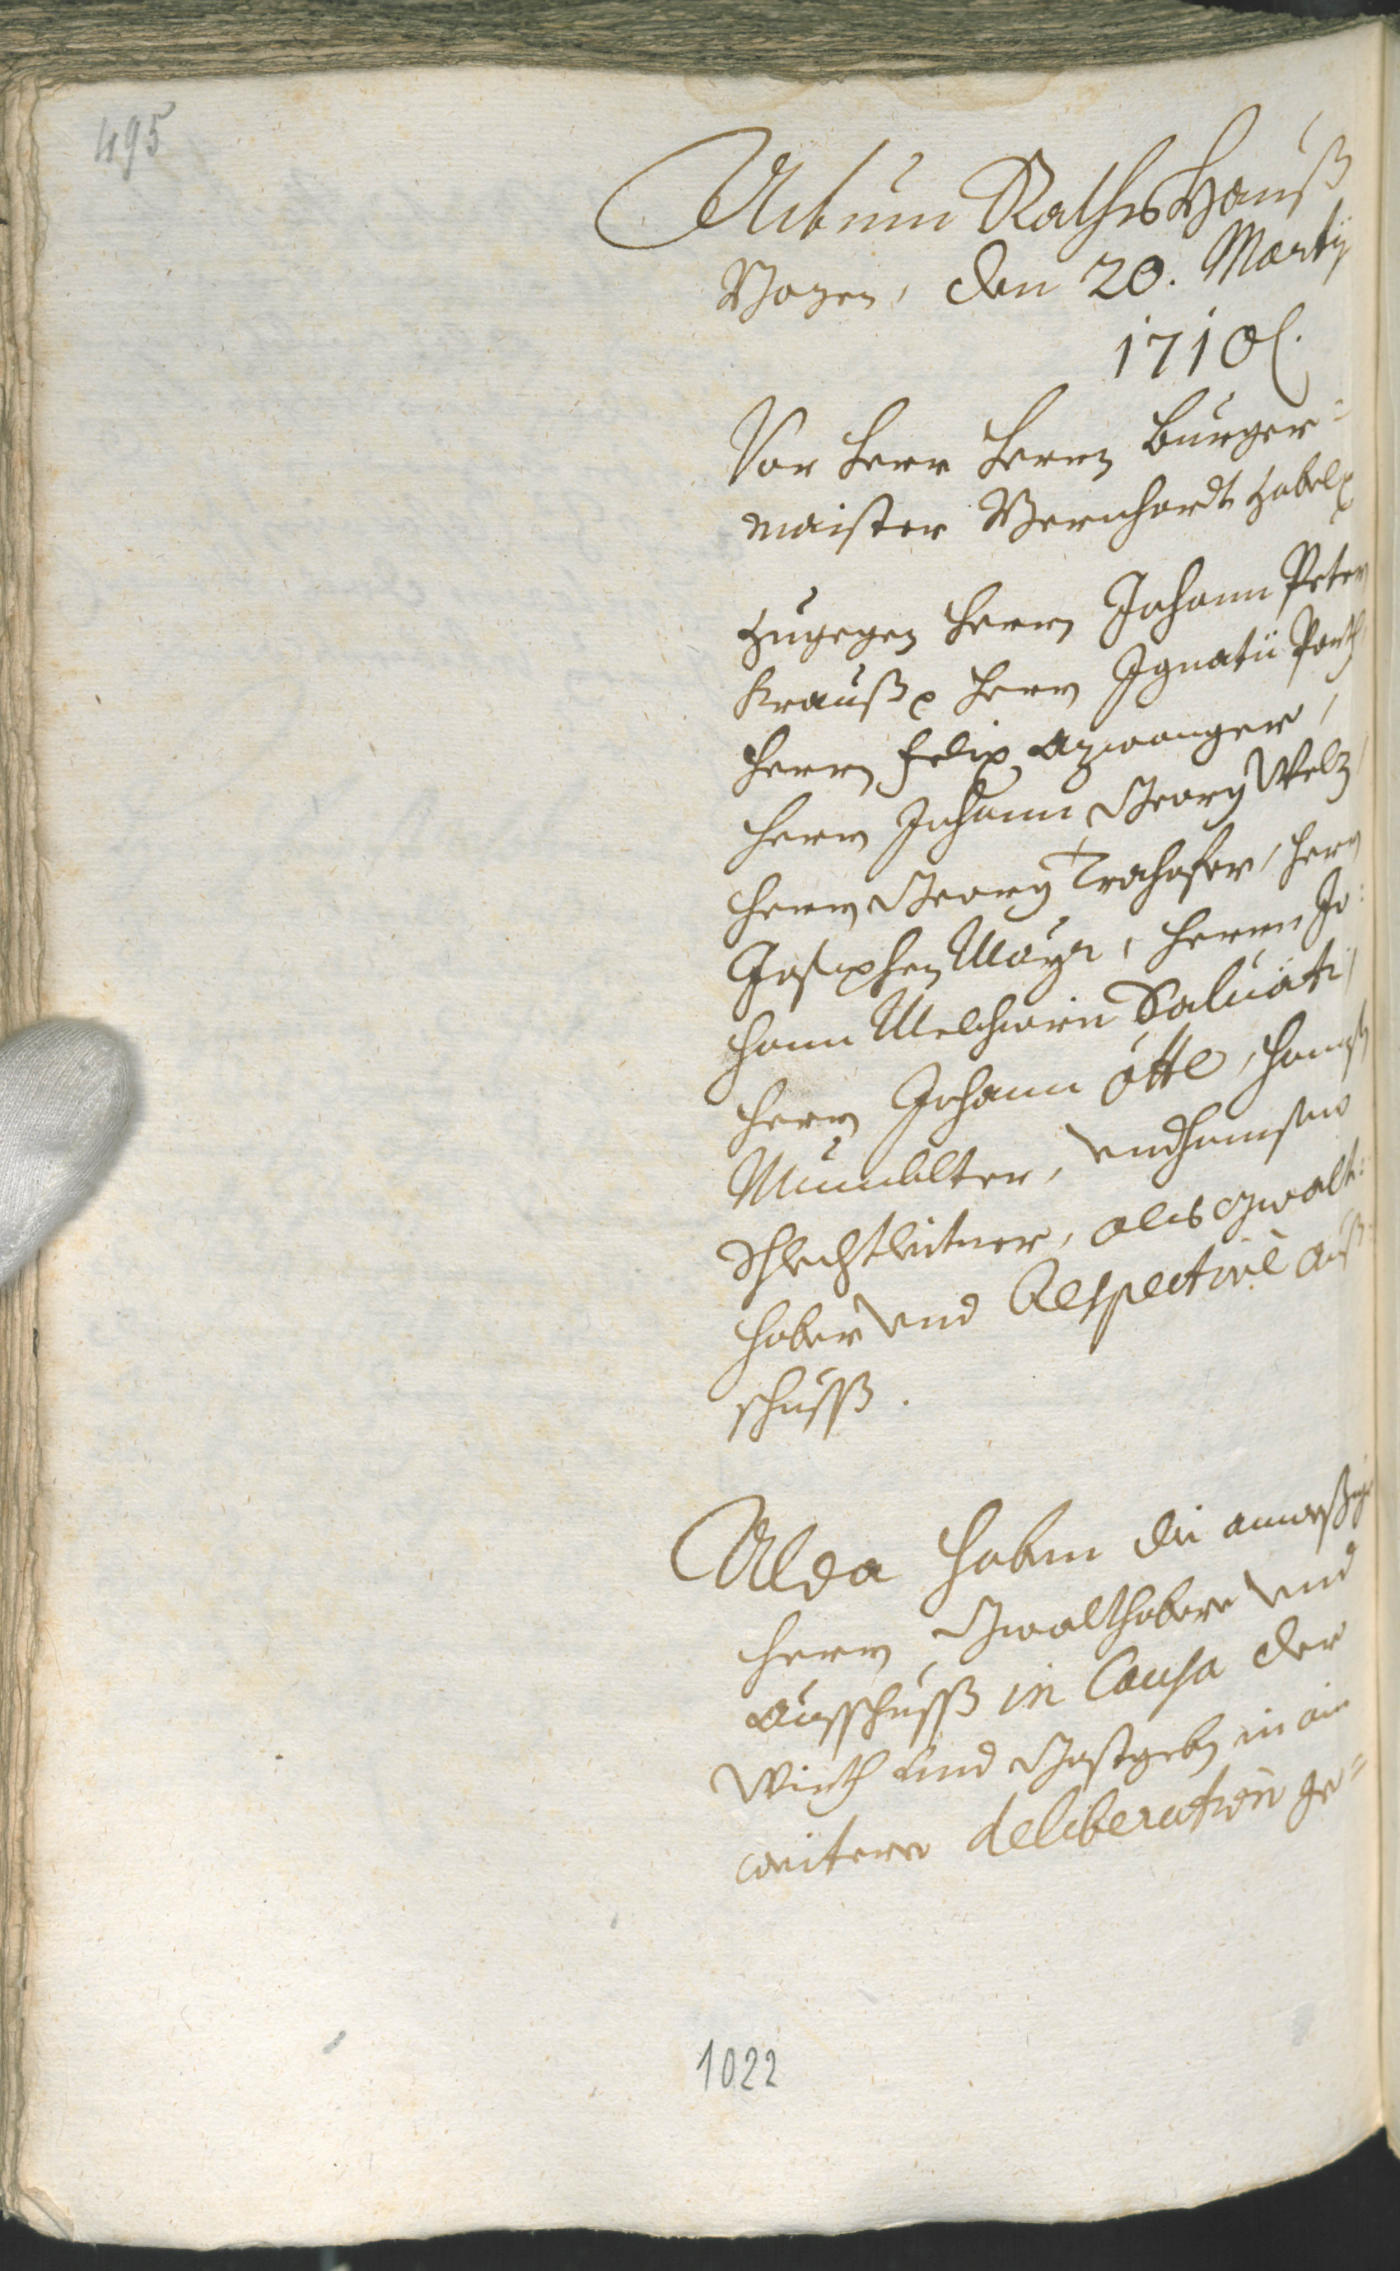 495
Actum Rathshauß
Bozen, den 20. Martÿ
1710
Vor Herr Herrn Burger=
maister Bernhardt Gabelx
Zugegen Herrn Johann Peter
Kraußx Herrn Ignatii
Herrn Felix Azwanger,
Herrn Johann Georg Welz,
Herrn Georg Trahofer, Herrn
Josephen Mayr, Herrn Jo:
hann Melchiorn Saluati,
Herrn Johann otte, Hannsß
Mumelter, und Hannsen
Schlechtleitner, als Gwalt:
haber und Respective Auß
schuss.
Alda haben die anweßige
Herrn Gwalthabere und
Ausschuss in Causa der
Wirth und Gastgeb in ein
weitere deliberation ge=
1022